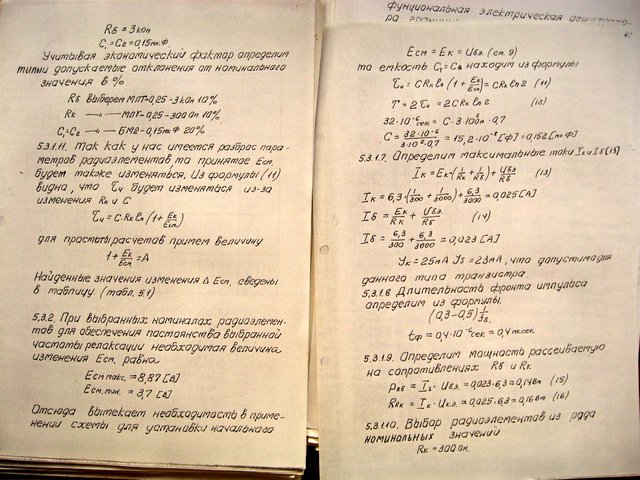 Rб = 3 кОп
C₁ = C₂ = 0,15 мк.Ф
Учитывая экономический фактор определим
типы допускаемые отклонения от номинального
значения в %
Rб выберем МЛТ-0,25-3 кОп 10%
Rк —»— МЛТ-0,25-300 Ом 10%
C₁=C₂ —»— БМ2-0,15 мк Ф 20%
5.3.1.11. Так как у нас имеется разброс пара-
метров радиоэлементов то принятое Eсм.
будет также изменяться. Из формулы (11)
видно, что τи будет изменяться из-за
изменения Rк и C
τи = C·Rк ln(1 + Eк/Eсм)
для простоты расчетов примем величину
1 + Eк/Eсм = A
Найденные значения изменения Δ Eсм. сведены
в таблицу. (табл. 5.1)
5.3.2. При выбранных номиналах радиоэлемен-
тов для обеспечения постоянства выбранной
частоты релаксации необходимая величина
изменения Eсм. равна
Eсм макс. = 8,87 [в]
Eсм. мин. = 3,7 [в]
Отсюда вытекает необходимость в приме-
нении схемы для установки начального
Функциональная электрическая
ра
Eсм = Eк = Uбэ. (ст. 9)
та емкость C₁=C₂ находим из формулы
τи = CRк ln(1 + Eк/Eсм) = CRк ln 2 (11)
T = 2τи = 2CRк ln 2 (12)
32·10⁻⁶сек = C·3·10² Ом·0,7
C = 32·10⁻⁶/3·10²·0,7 = 15,2·10⁻⁸ [Ф] = 0,152 [мк.Ф]
5.3.1.7. Определим максимальные токи Iк и Iб [13]
Iк = Eк·(1/Rк + 1/Rб) + Uбэ/Rб (13)
Iк = 6,3·(1/300 + 1/3000) + 6,3/3000 = 0,025 [А]
Iб = Eк/Rк + Uбэ/Rб (14)
Iб = 6,3/300 + 6,3/3000 = 0,023 [А]
Iк = 25мА Iб = 23мА, что допустимо для
данного типа транзистра.
5.3.1.8 Длительность фронта импульса
определим из формулы.
(0,3-0,5) 1/
tф = 0,4·10⁻⁶сек = 0,4 мк.сек
5.3.1.9. Определим мощность рассеиваемую
на сопротивлениях Rб и Rк
PRб = Iб·Uбэ. = 0,023·6,3 = 0,14 вт (15)
PRк = Iк·Uкэ. = 0,025·6,3 = 0,16 вт (16)
5.3.1.10. Выбор радиоэлементов из ряда
номинальных значений
Rк = 300 Ом.